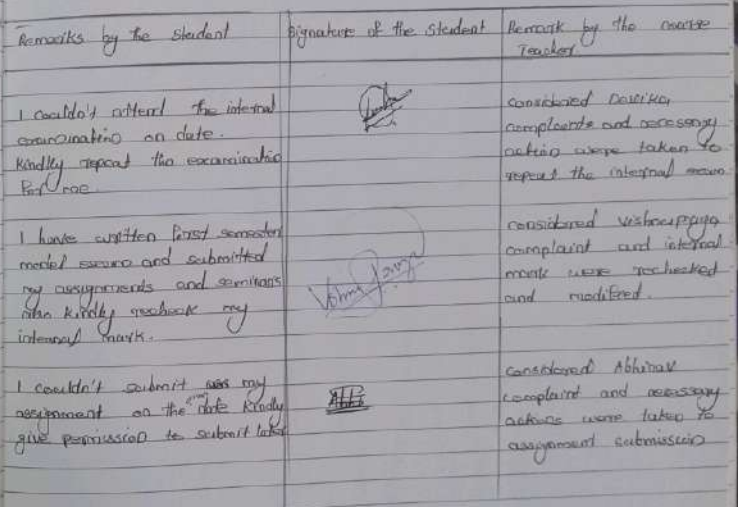 Remarks by the student
Signature of the student
Remark by the course
Teacher
I couldn't attend the internal
examination on date.
Kindly repeat the examination
for me.
considered
complaints and necessary
action were taken to
repeat the internal exam
I have written first semester
model exam and submitted
my assignments and seminars
kindly recheck my
internal mark.
considered Vishnupriya
complaint and internal
mark were rechecked
and modified.
I couldn't submit my
assignment on the date kindly
give permission to submit later
considered Abhinav
complaint and necessary
actions were taken to
assignment submission